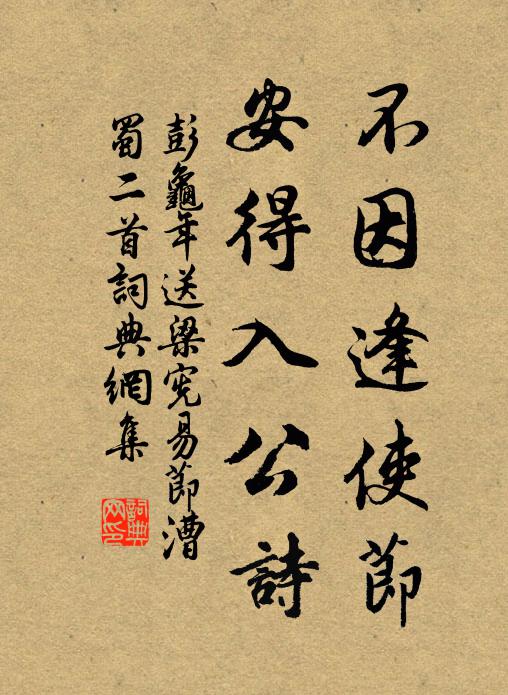 不因逢使節
安得入公詩
彭龜年送梁宪易節漕
蜀二首詞典網集
詞典网印